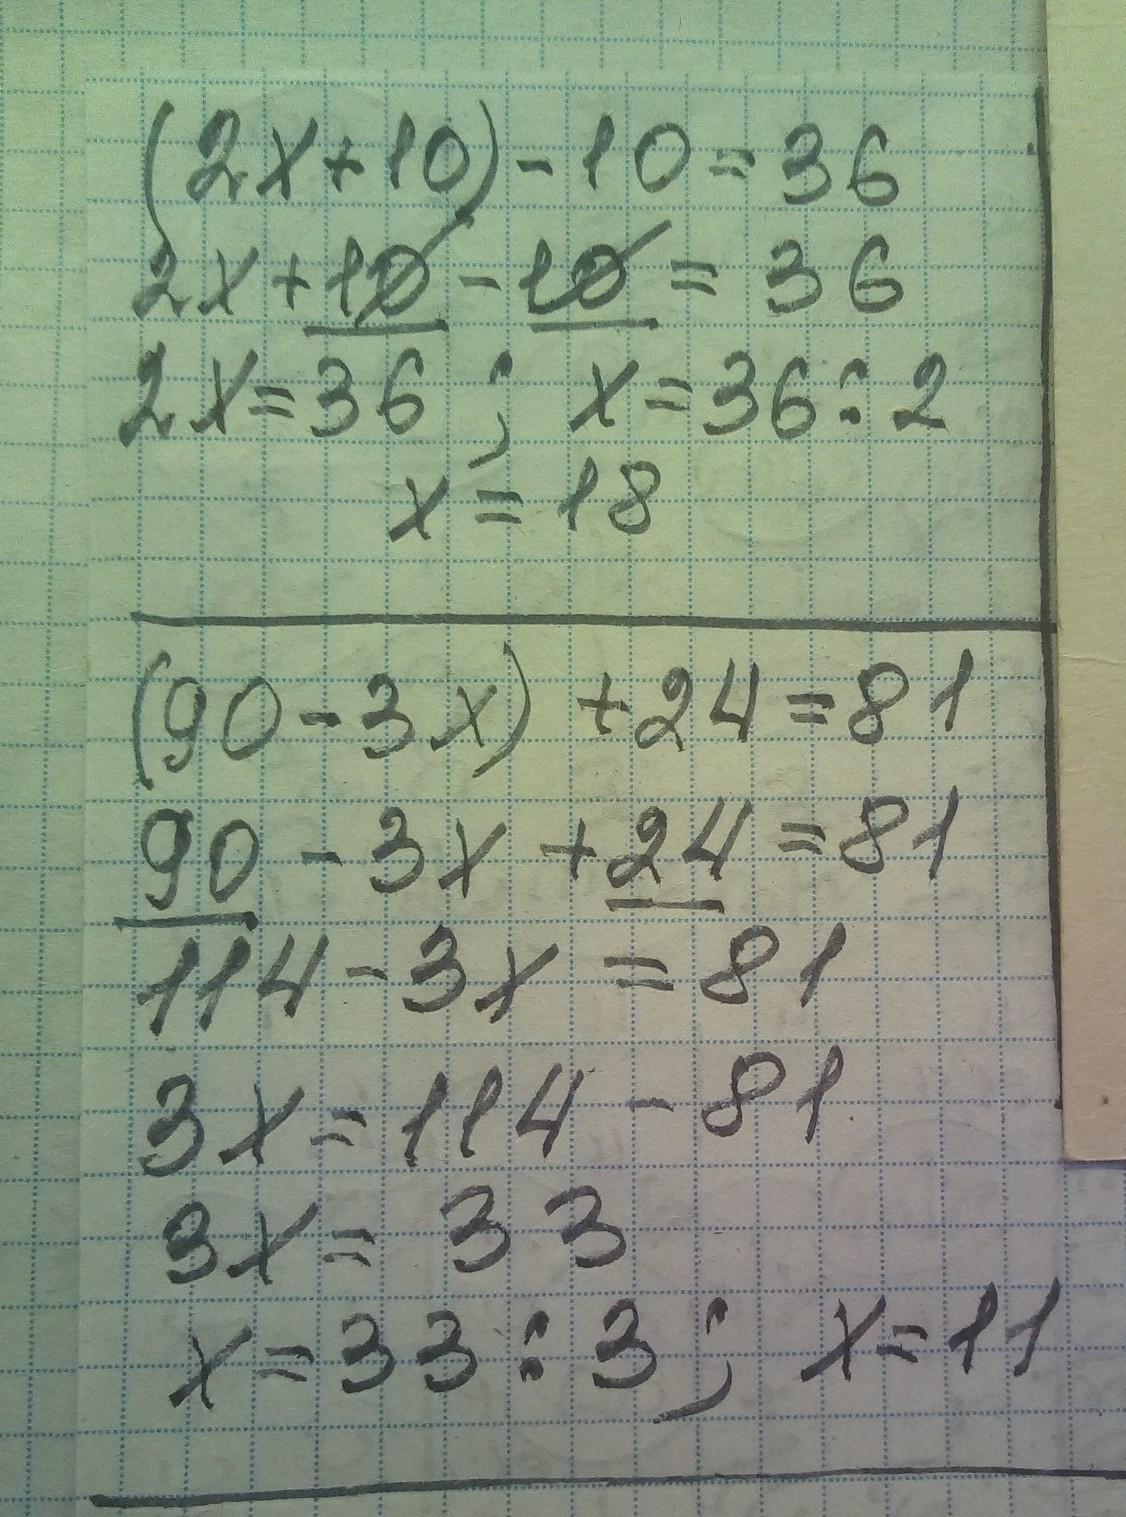 (2x+10)-10=36
2x+10-10=36
2x=36; x=36:2
x=18
(90-3x)+24=81
90-3x+24=81
114-3x=81
3x=114-81
3x=33
x=33:3; x=11